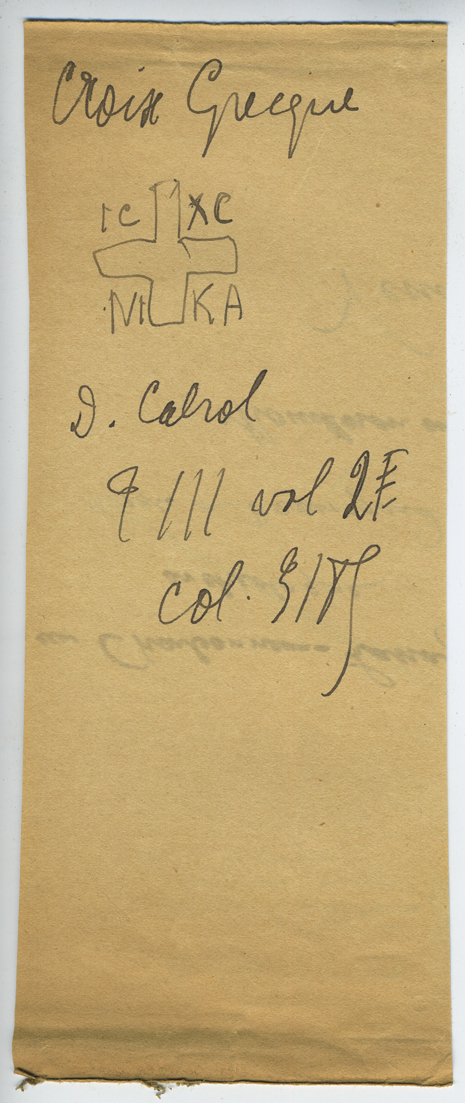 Croix Grecque
IC XC
NI KA
D. Cabrol
T III vol 2E
col.